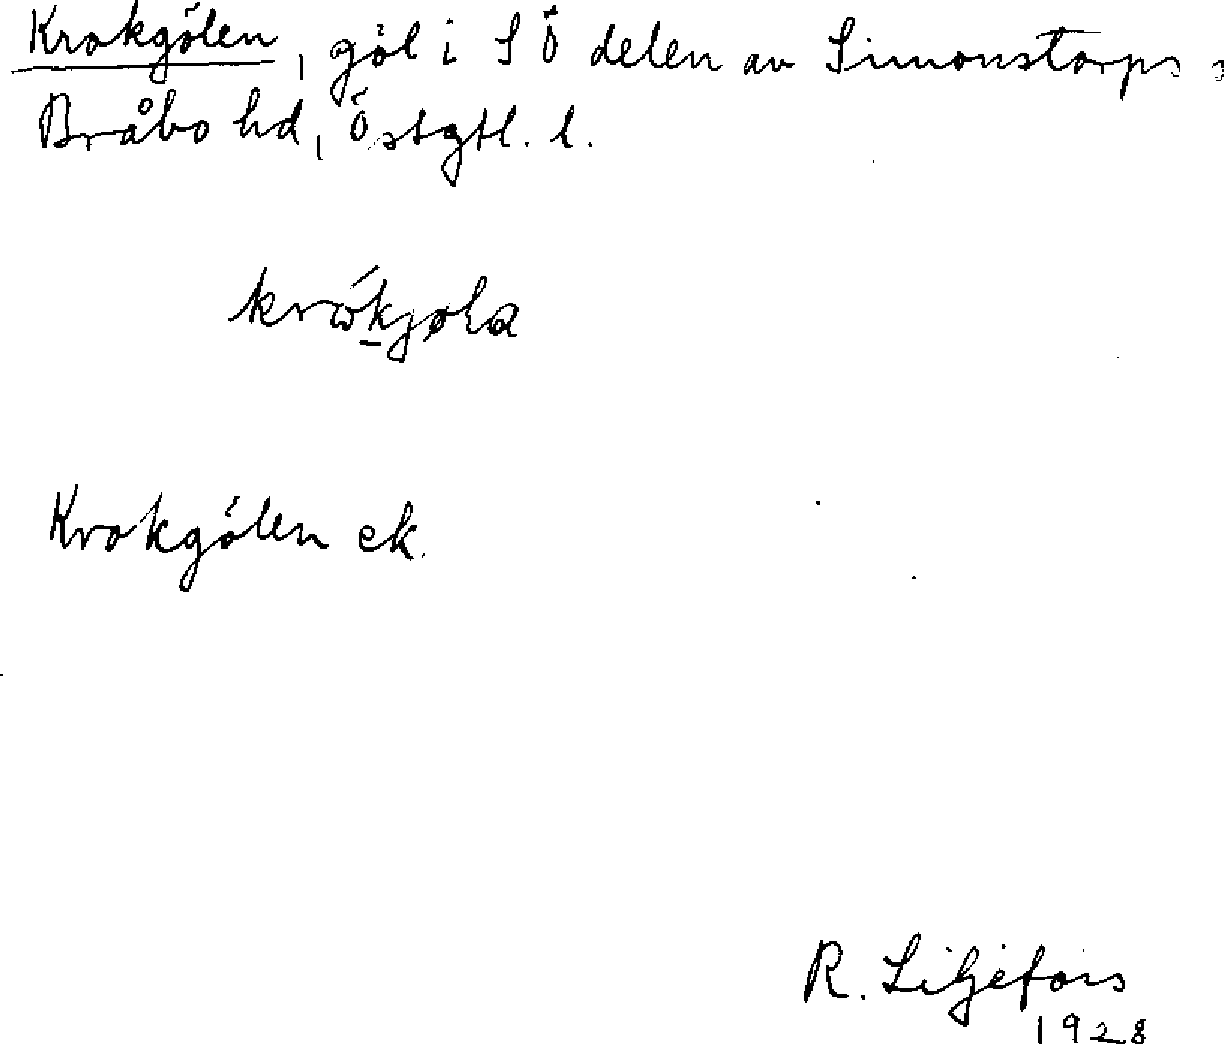 Krokgölen, göl i SÖ delen av Simonstorps s
Bråbo hd, Östgtl. l.
Krokgölen ek.
R. Liljefors
1928